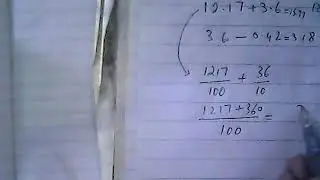 12.17+3.6=1577
3.6-0.42=3.18
1217/100 + 36/10
1217+360/100 =